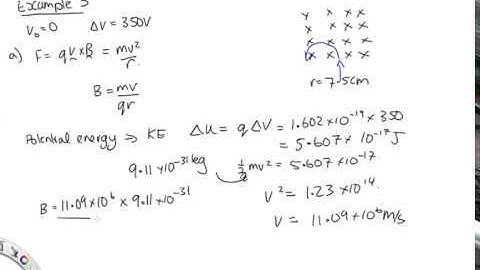 Example 3
V₀=0 ΔV = 350V
a) F = qv×B = mv²/r
B = mv/qr
x x x x
x x x x
x x x x
x x x x
r = 7.5cm
Potential energy ⇒ KE ΔU = qΔV = 1.602×10⁻¹⁹ × 350
= 5.607 × 10⁻¹⁷ J
9.11×10⁻³¹kg ½mv² = 5.607×10⁻¹⁷
v² = 1.23×10¹⁴
v = 11.09×10⁶m/s
B = 11.09×10⁶ × 9.11×10⁻³¹